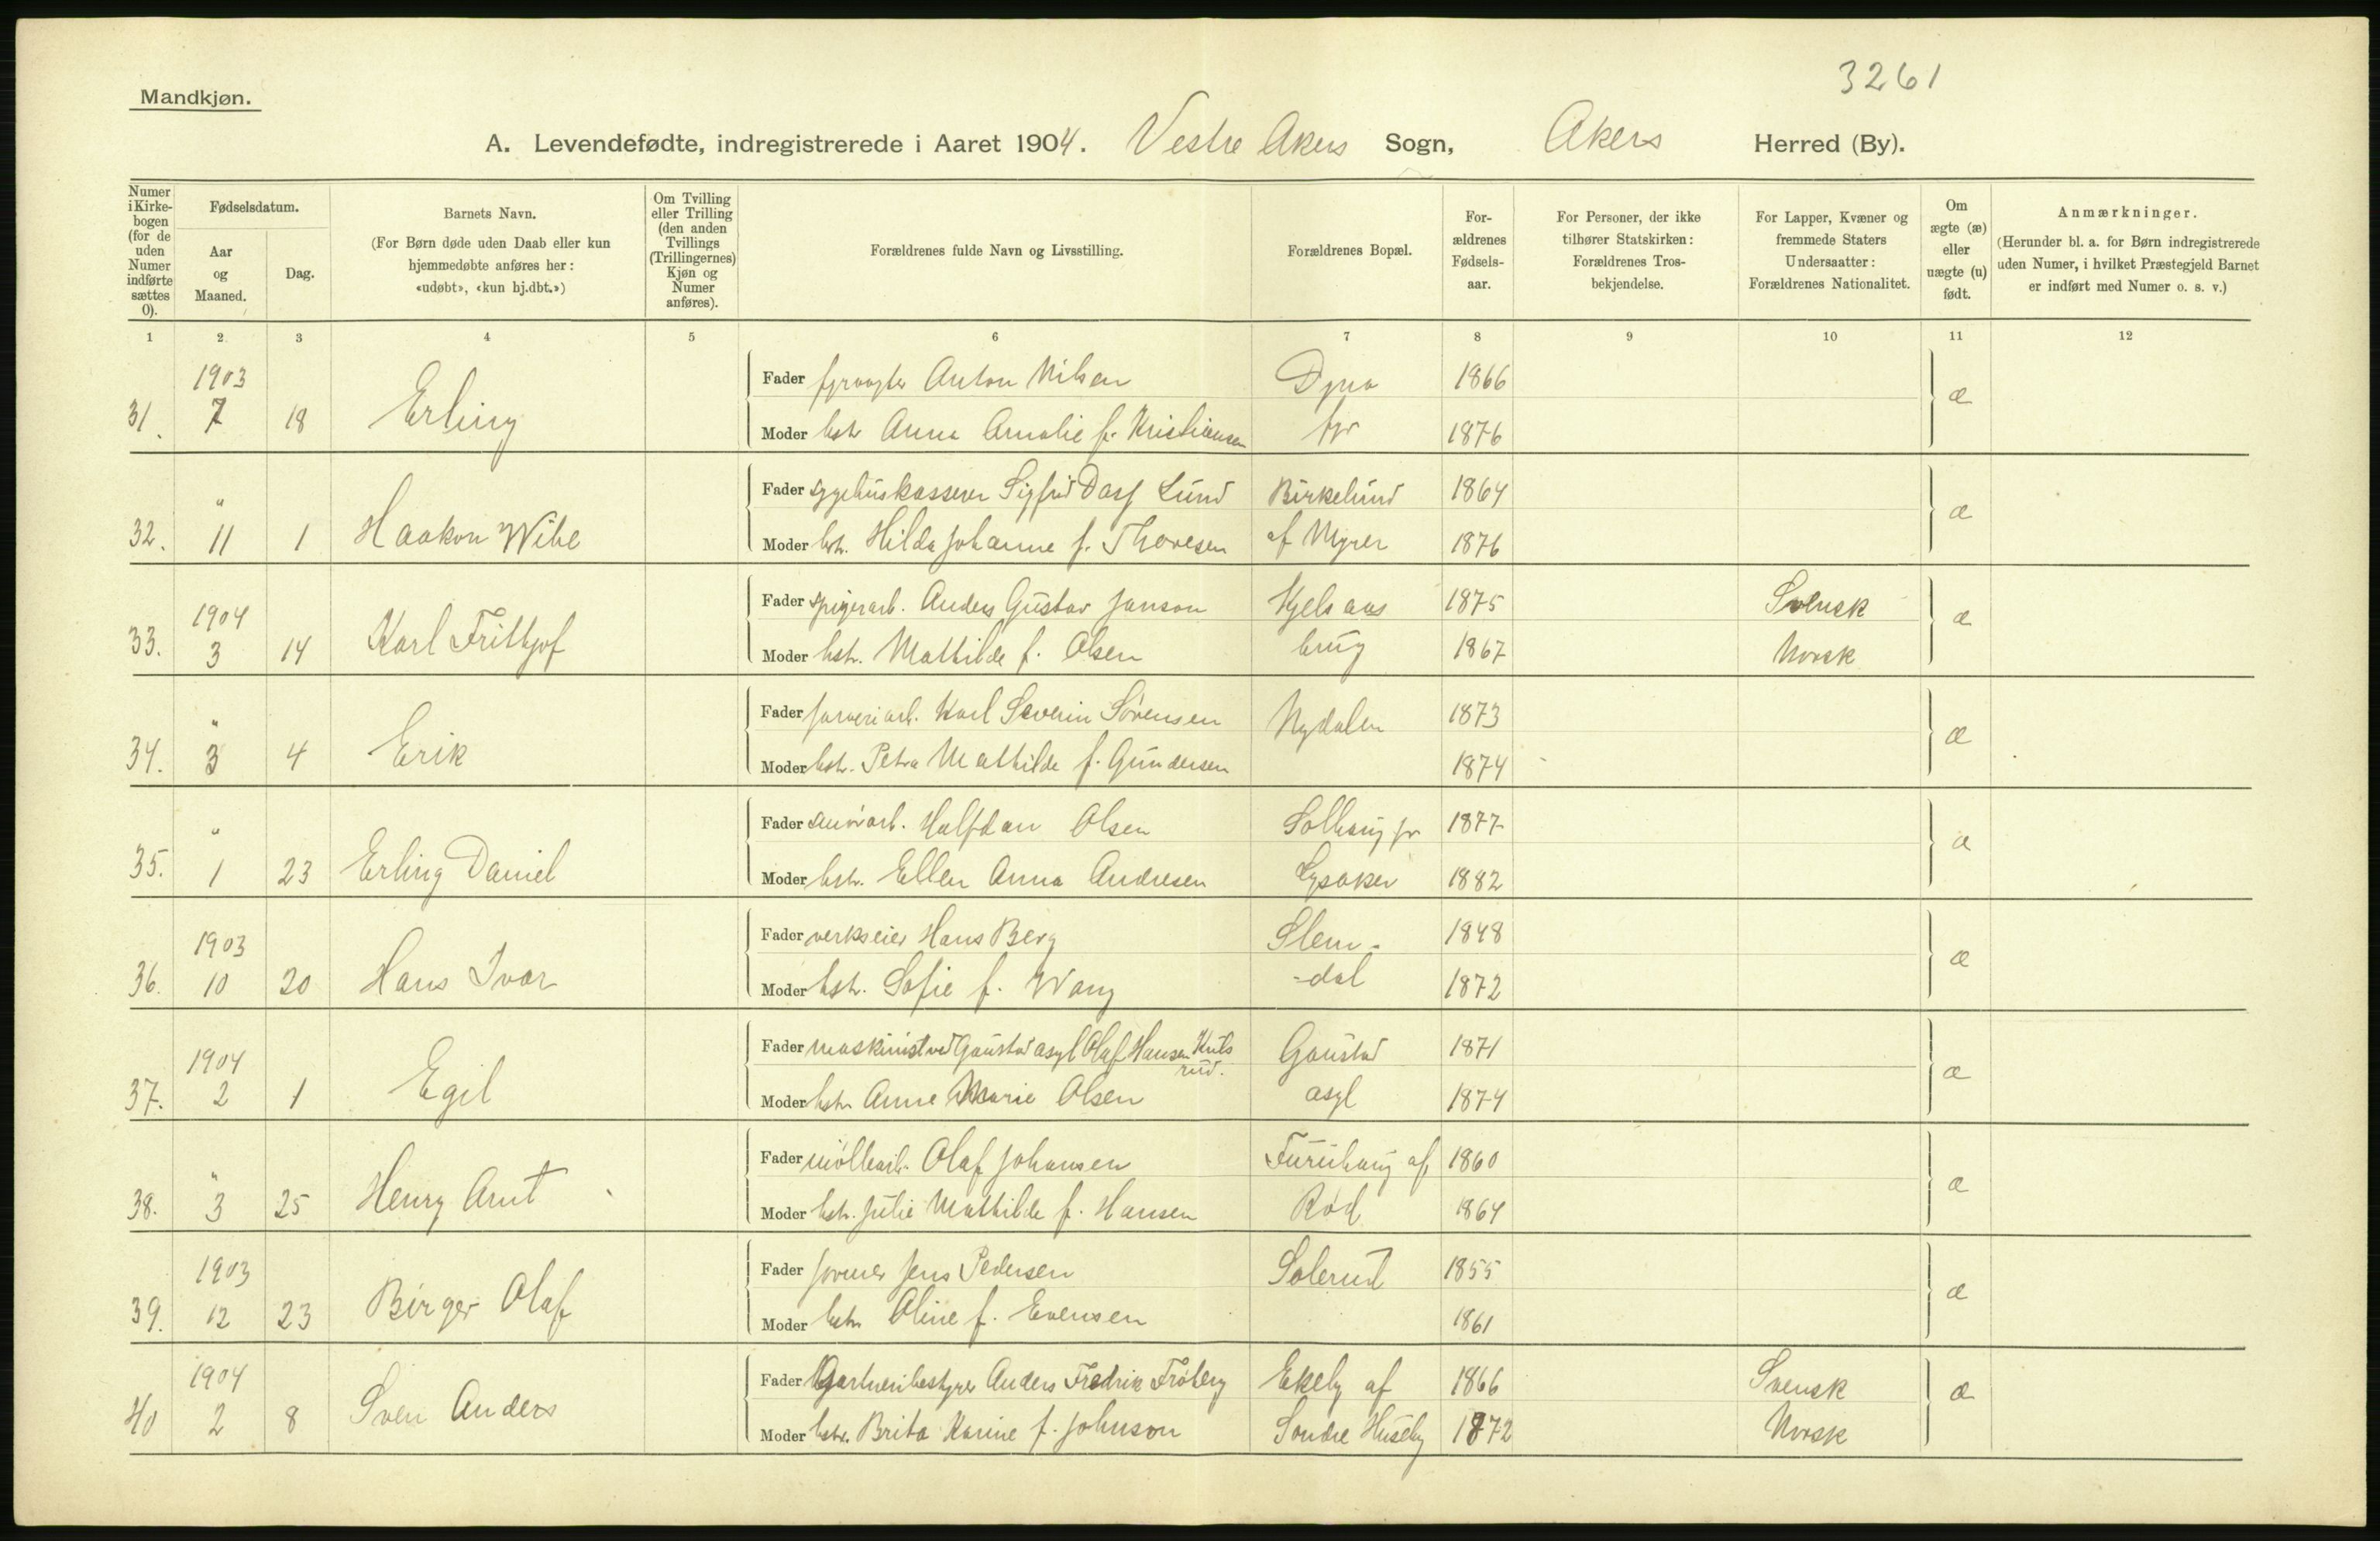 3261
Mandkjøn.
A. Levendefødte, indregistrerede i Aaret 1904. Vestre Akers Sogn, Akers Herred (By).
Numer i Kirkebogen (for de uden Numer indførte sættes 0).
Fødselsdatum.
Aar og Maaned.
Dag.
Barnets Navn.
(For Børn døde uden Daab eller kun hjemmedøbte anføres her: «udøbt», «kun hj.dbt.»)
Om Tvilling eller Trilling (den anden Tvillings (Trillingernes) Kjøn og Numer anføres).
Forældrenes fulde Navn og Livsstilling.
Forældrenes Bopæl.
Forældrenes Fødselsaar.
For Personer, der ikke tilhører Statskirken: Forældrenes Trosbekjendelse.
For Lapper, Kvæner og fremmede Staters Undersaatter: Forældrenes Nationalitet.
Om ægte (æ) eller uægte (u) født.
Anmærkninger.
(Herunder bl. a. for Børn indregistrerede uden Numer, i hvilket Præstegjeld Barnet er indført med Numer o. s. v.)
1 2 3 4 5 6 7 8 9 10 11 12
1903 Fader fyrvogter Anton Nilsen Dyna 1866
31. 7 18 Erling Moder hstr Anna Amalie f. Kristiansen fyr 1876 æ
" Fader sygehuskasserer Sigfrid Lund Birkelund 1864
32. 11 1 Haakon Wibe Moder hstr. Hilda Johanne f. Thoresen af Myrer 1876 æ
1904 Fader spigerarb. Anders Gustav Janson Kjelsaas 1875 Svensk
33. 3 14 Karl Frithjof Moder hstr. Mathilde f. Olsen brug 1867 Norsk æ
" Fader farveriarb. Karl Severin Sørensen Nydalen 1873
34. 3 4 Erik Moder hstr. Petra Mathilde f. Gundersen 1874 æ
" Fader Halfdan Olsen Solhaug pr 1877
35. 1 23 Erling Daniel Moder hstr. Ellen Anna Andresen Lysaker 1882 æ
1903 Fader verkseier Hans Berg Slem- 1848
36. 10 20 Hans Ivar Moder hstr. Sofie f. Wang -dal 1872 æ
1904 Fader maskinist ved Gaustad asyl Olaf Hansen Knutsrud. Gaustad 1871
37. 2 1 Egil Moder hstr Anne Marie Olsen asyl 1874 æ
" Fader møllearb. Olaf Johansen Furuhaug af 1860
38. 3 25 Henry Arnt Moder hstr. Julie Mathilde f. Hansen Rød 1864 æ
1903 Fader former Jens Pedersen Solerud 1855
39. 12 23 Birger Olaf Moder hstr Oline f. Evensen 1861 æ
1904 Fader Gartneribestyrer Anders Fredrik Frøberg Ekely af 1866 Svensk
40 2 8 Sven Anders Moder hstr. Brita Karine f. Johnson Søndre Huseby 1872 Norsk æ